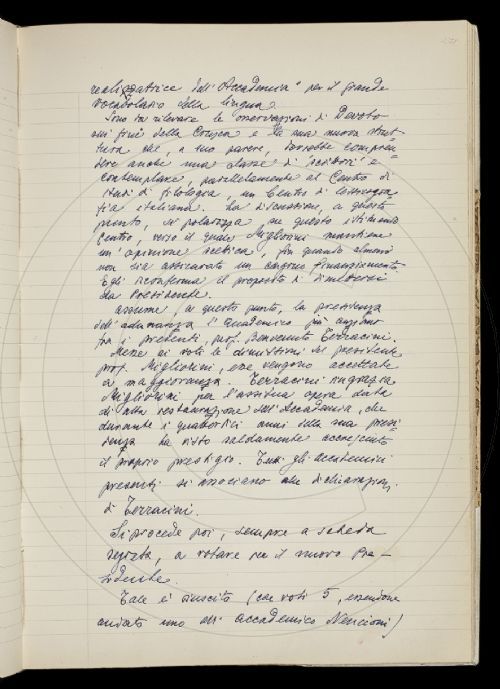 realizzatrice dell'Accademia" per il grande
vocabolario della lingua.
Sono da rilevare le osservazioni di Devoto
sui fini della Crusca e la sua nuova strut-
tura che, a suo parere, dovrebbe compren-
dere anche una classe di "scrittori" e
contemplare, parallelamente al Centro di
studi di filologia, un Centro di lessicogra-
fia italiana. La discussione, a questo
punto, si polarizza su questo istituendo
Centro, verso il quale Migliorini mantiene
un'opinione scettica, fin quando almeno
non sia assicurato un congruo finanziamento.
Egli riconferma il proposito di dimettersi
da Presidente.
Assume, a questo punto, la presidenza
dell'adunanza l'Accademico più anziano
fra i presenti, prof. Benvenuto Terracini.
Messe ai voti le dimissioni del presidente
prof. Migliorini, esse vengono accettate
a maggioranza. Terracini ringrazia
Migliorini per l'assidua opera data
di alta restaurazione dell'Accademia, che
durante i quattordici anni della sua presi-
denza ha visto saldamente accresciuto
il proprio prestigio. Tutti gli accademici
presenti si associano alle dichiarazioni
di Terracini.
Si procede poi, sempre a scheda
segreta, a votare per il nuovo Pre-
sidente.
Tale è riuscito (con voti 5, essendone
andato uno all'accademico Nencioni)